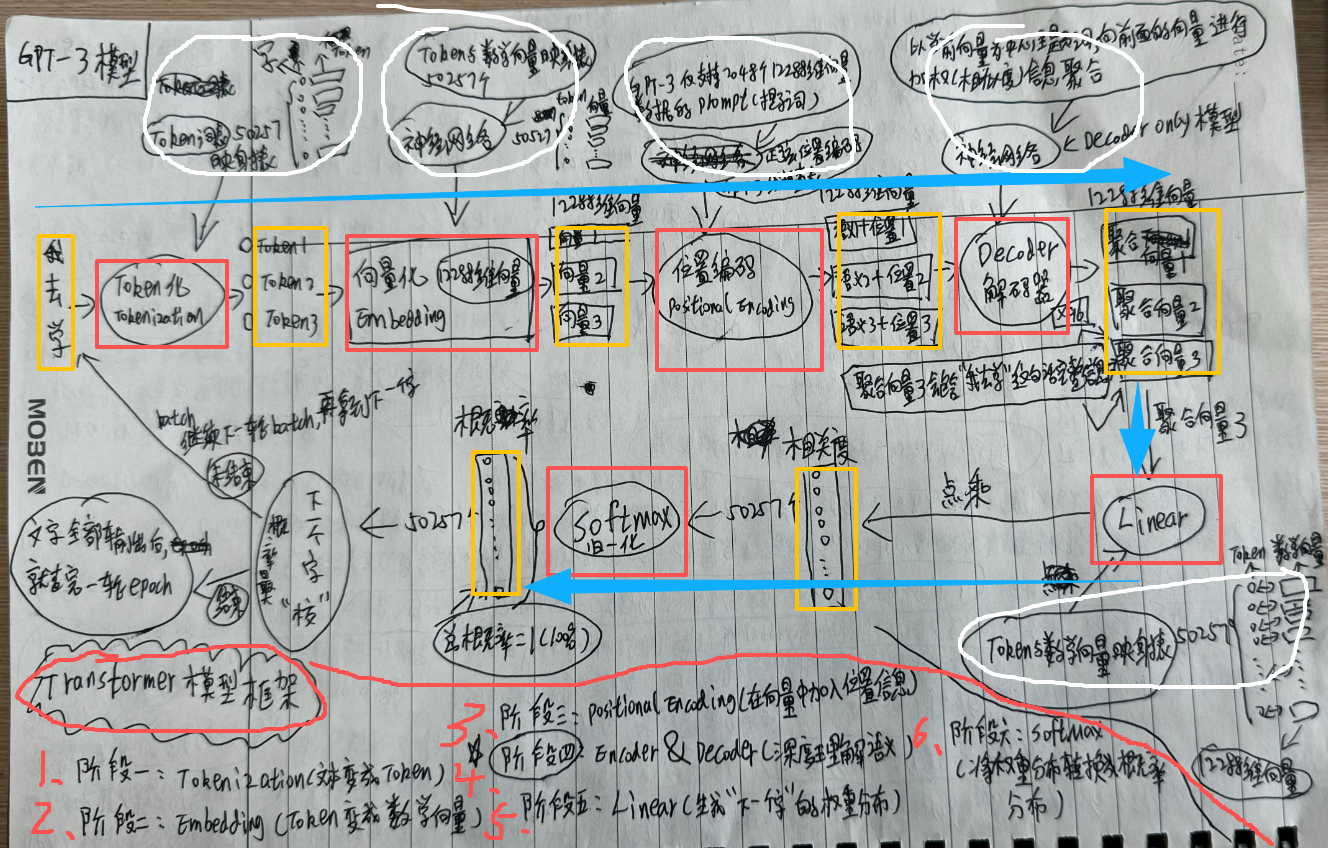 GPT-3 模型
字
Token
Token词
50257
映射表
Tokens数学向量映射表
50257个
神经网络
token
向量
50527
GPT-3 仅支持2048个12288维向量
数据的 prompt(提示词)
正弦位置编码
以当前向量为中心
向前面的向量进行
加权(相似度)信息聚合
神经网络
Decoder only 模型
我
去
学
Token化
Tokenization
Token1
Token2
Token3
向量化
12288维向量
Embedding
12288维向量
向量1
向量2
向量3
位置编码
Positional Encoding
12288维向量
语义1+位置1
语义2+位置2
语义3+位置3
Decoder
解码器
12288维向量
聚合
向量1
聚合向量2
聚合向量3
聚合向量3
Linear
点乘
相关度
50257个
Softmax
归一化
概率
50257个
总概率=1(100%)
下一个字
"校"
概率最
batch
继续下一轮batch,再拿到下一个字
未结束
结束
文字全部输出台,
就言完一轮epoch
Tokens数学向量映射表
50257个
Token 数学向量
12288维向量
MOBEN
Transformer 模型框架
1、阶段一:Tokenization(文本变成Token)
2、阶段二:Embedding(Token变成数学向量)
3、阶段三:Positional Encoding(在向量中加入位置信息)
4、阶段四:Encoder & Decoder(深度理解语义)
5、阶段五:Linear(生成"下一个字"的权重分布)
6、阶段六:Softmax
(将权重分布转换成概率
分布)